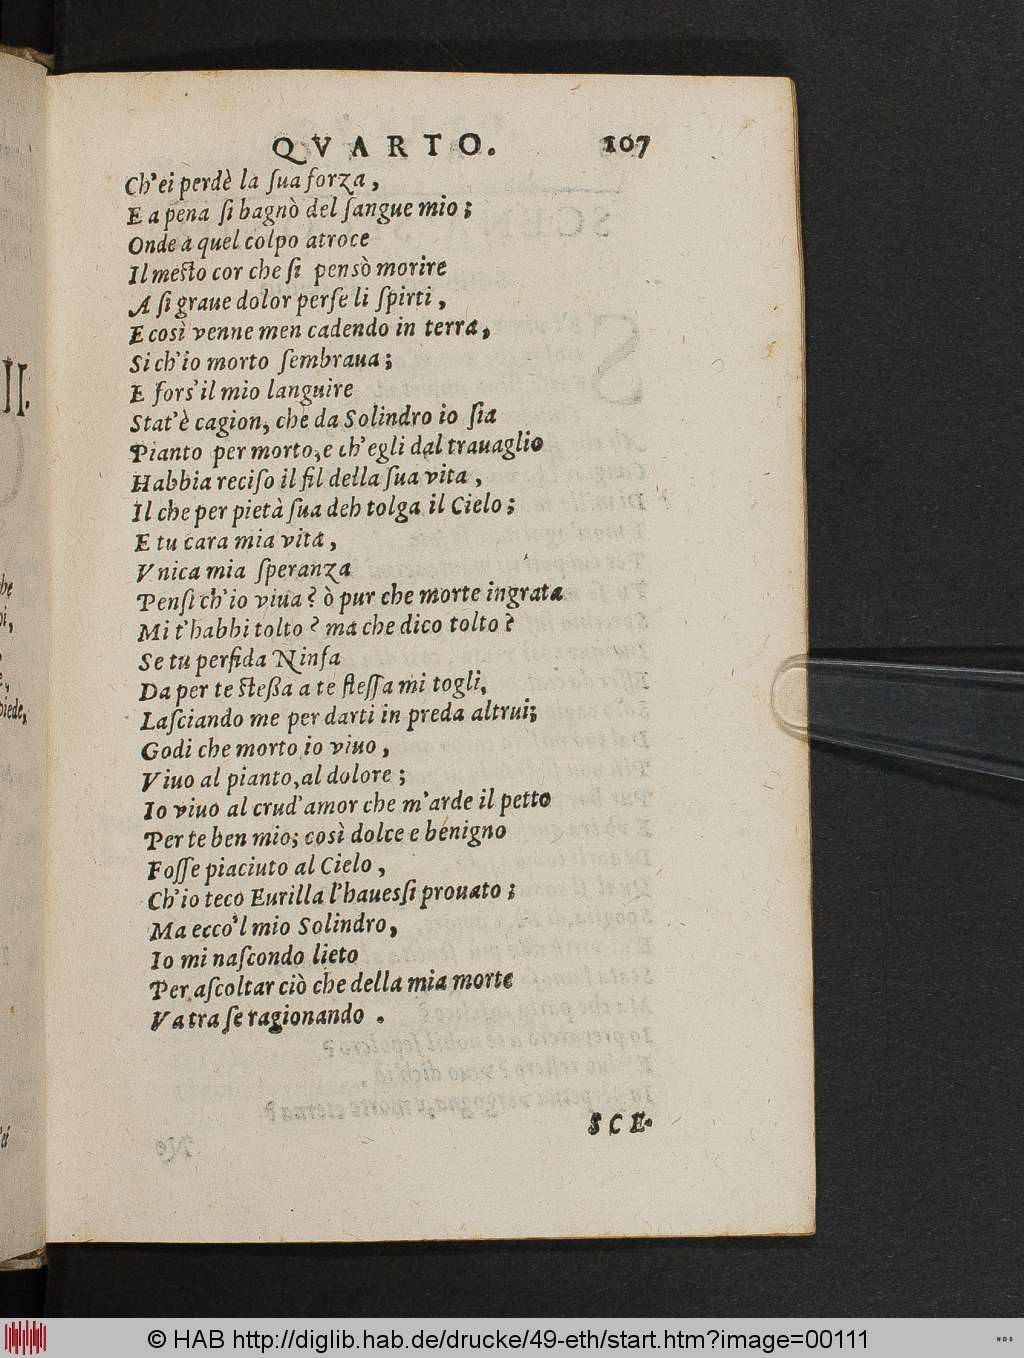 QVARTO. 107
Ch'ei perdè la ſua forza,
E a pena ſi bagnò del ſangue mio;
Onde a quel colpo atroce
Il meſto cor che ſi penſò morire
A ſi graue dolor perſe li ſpirti,
E così venne men cadendo in terra,
Si ch'io morto ſembraua;
E fors'il mio languire
Stat'è cagion, che da Solindro io ſia
Pianto per morto, e ch'egli dal trauaglio
Habbia reciſo il fil della ſua vita,
Il che per pietà ſua deh tolga il Cielo;
E tu cara mia vita,
Vnica mia ſperanza
Penſi ch'io viua? ò pur che morte ingrata
Mi t'habbi tolto? ma che dico tolto?
Se tu perfida Ninfa
Da per te ſteßa a te ſteſſa mi togli,
Laſciando me per darti in preda altrui;
Godi che morto io viuo,
Viuo al pianto, al dolore;
Io viuo al crud'amor che m'arde il petto
Per te ben mio; così dolce e benigno
Foſſe piaciuto al Cielo,
Ch'io teco Eurilla l'haueſſi prouato;
Ma ecco'l mio Solindro,
Io mi naſcondo lieto
Per aſcoltar ciò che della mia morte
Va tra ſe ragionando.
SCE-
II.
piede,
© HAB http://diglib.hab.de/drucke/49-eth/start.htm?image=00111